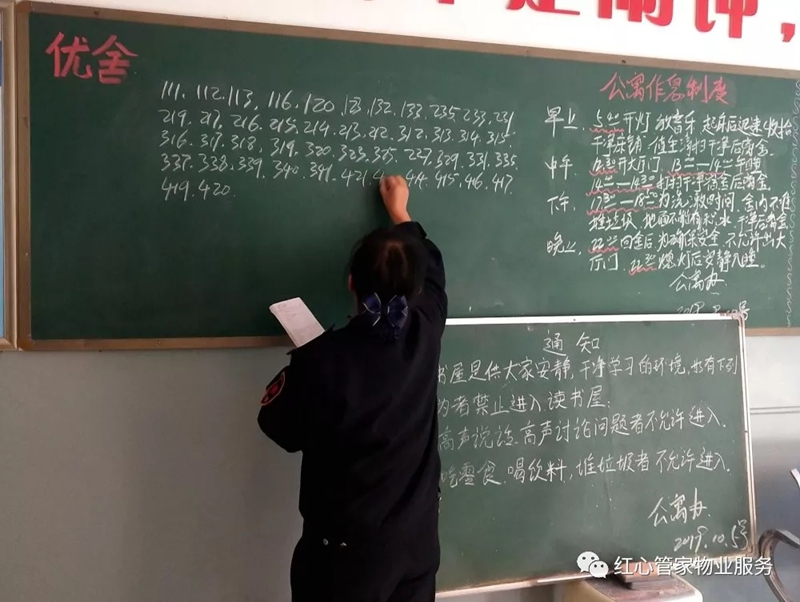 优舍
111. 112. 113. 116. 120. 123. 132. 133. 235. 233. 231
219. 217. 216. 215. 214. 213. 212. 312. 313. 314. 315.
316. 317. 318. 319. 320. 323. 325. 327. 329. 331. 335
337. 338. 339. 340. 341. 421. 414. 415. 416. 417.
419. 420.
公寓作息制度
早上: 开灯 放音乐 起床后迅速收拾
干净床铺
中午: 开大厅门
下午: 为洗漱时间, 舍内不准
堆垃圾, 地面不能有积水
晚上: 回舍后 为确保安全 不允许出大
厅门. 熄灯后安静入睡。
公寓办
通知
书屋是供大家安静, 干净学习的环境, 如有下列
为者禁止进入读书屋:
高声说话, 高声讨论问题者不允许进入.
吃零食、喝饮料, 堆垃圾者 不允许进入.
公寓办
2019.10.5号
红心管家物业服务